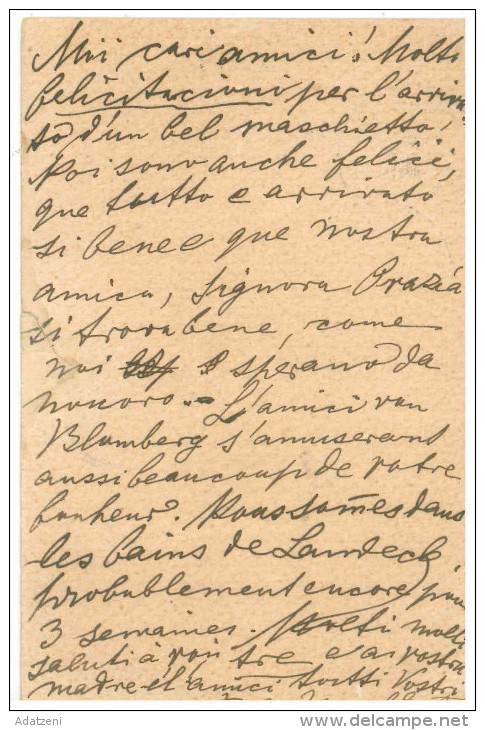 Mii cari amici! Molte
felicitacioni per l'arriva-
to d'un bel maschietto!
Noi sono anche felici,
que tutto e arrivato
si bene e que nostra
amica, Signora Orazia
si trova bene, come
noi sperano da
nouoro. - L'amici van
Blumberg s'amuserant
aussi beaucoup de votre
bonheur. Nous somes dans
les bains de Landeck
probablement encore pour
3 semaines. Molti molti
saluti à voi tre e a vostra
madre el amici tutti Vostri
Adatzeni
www.delcampe.net